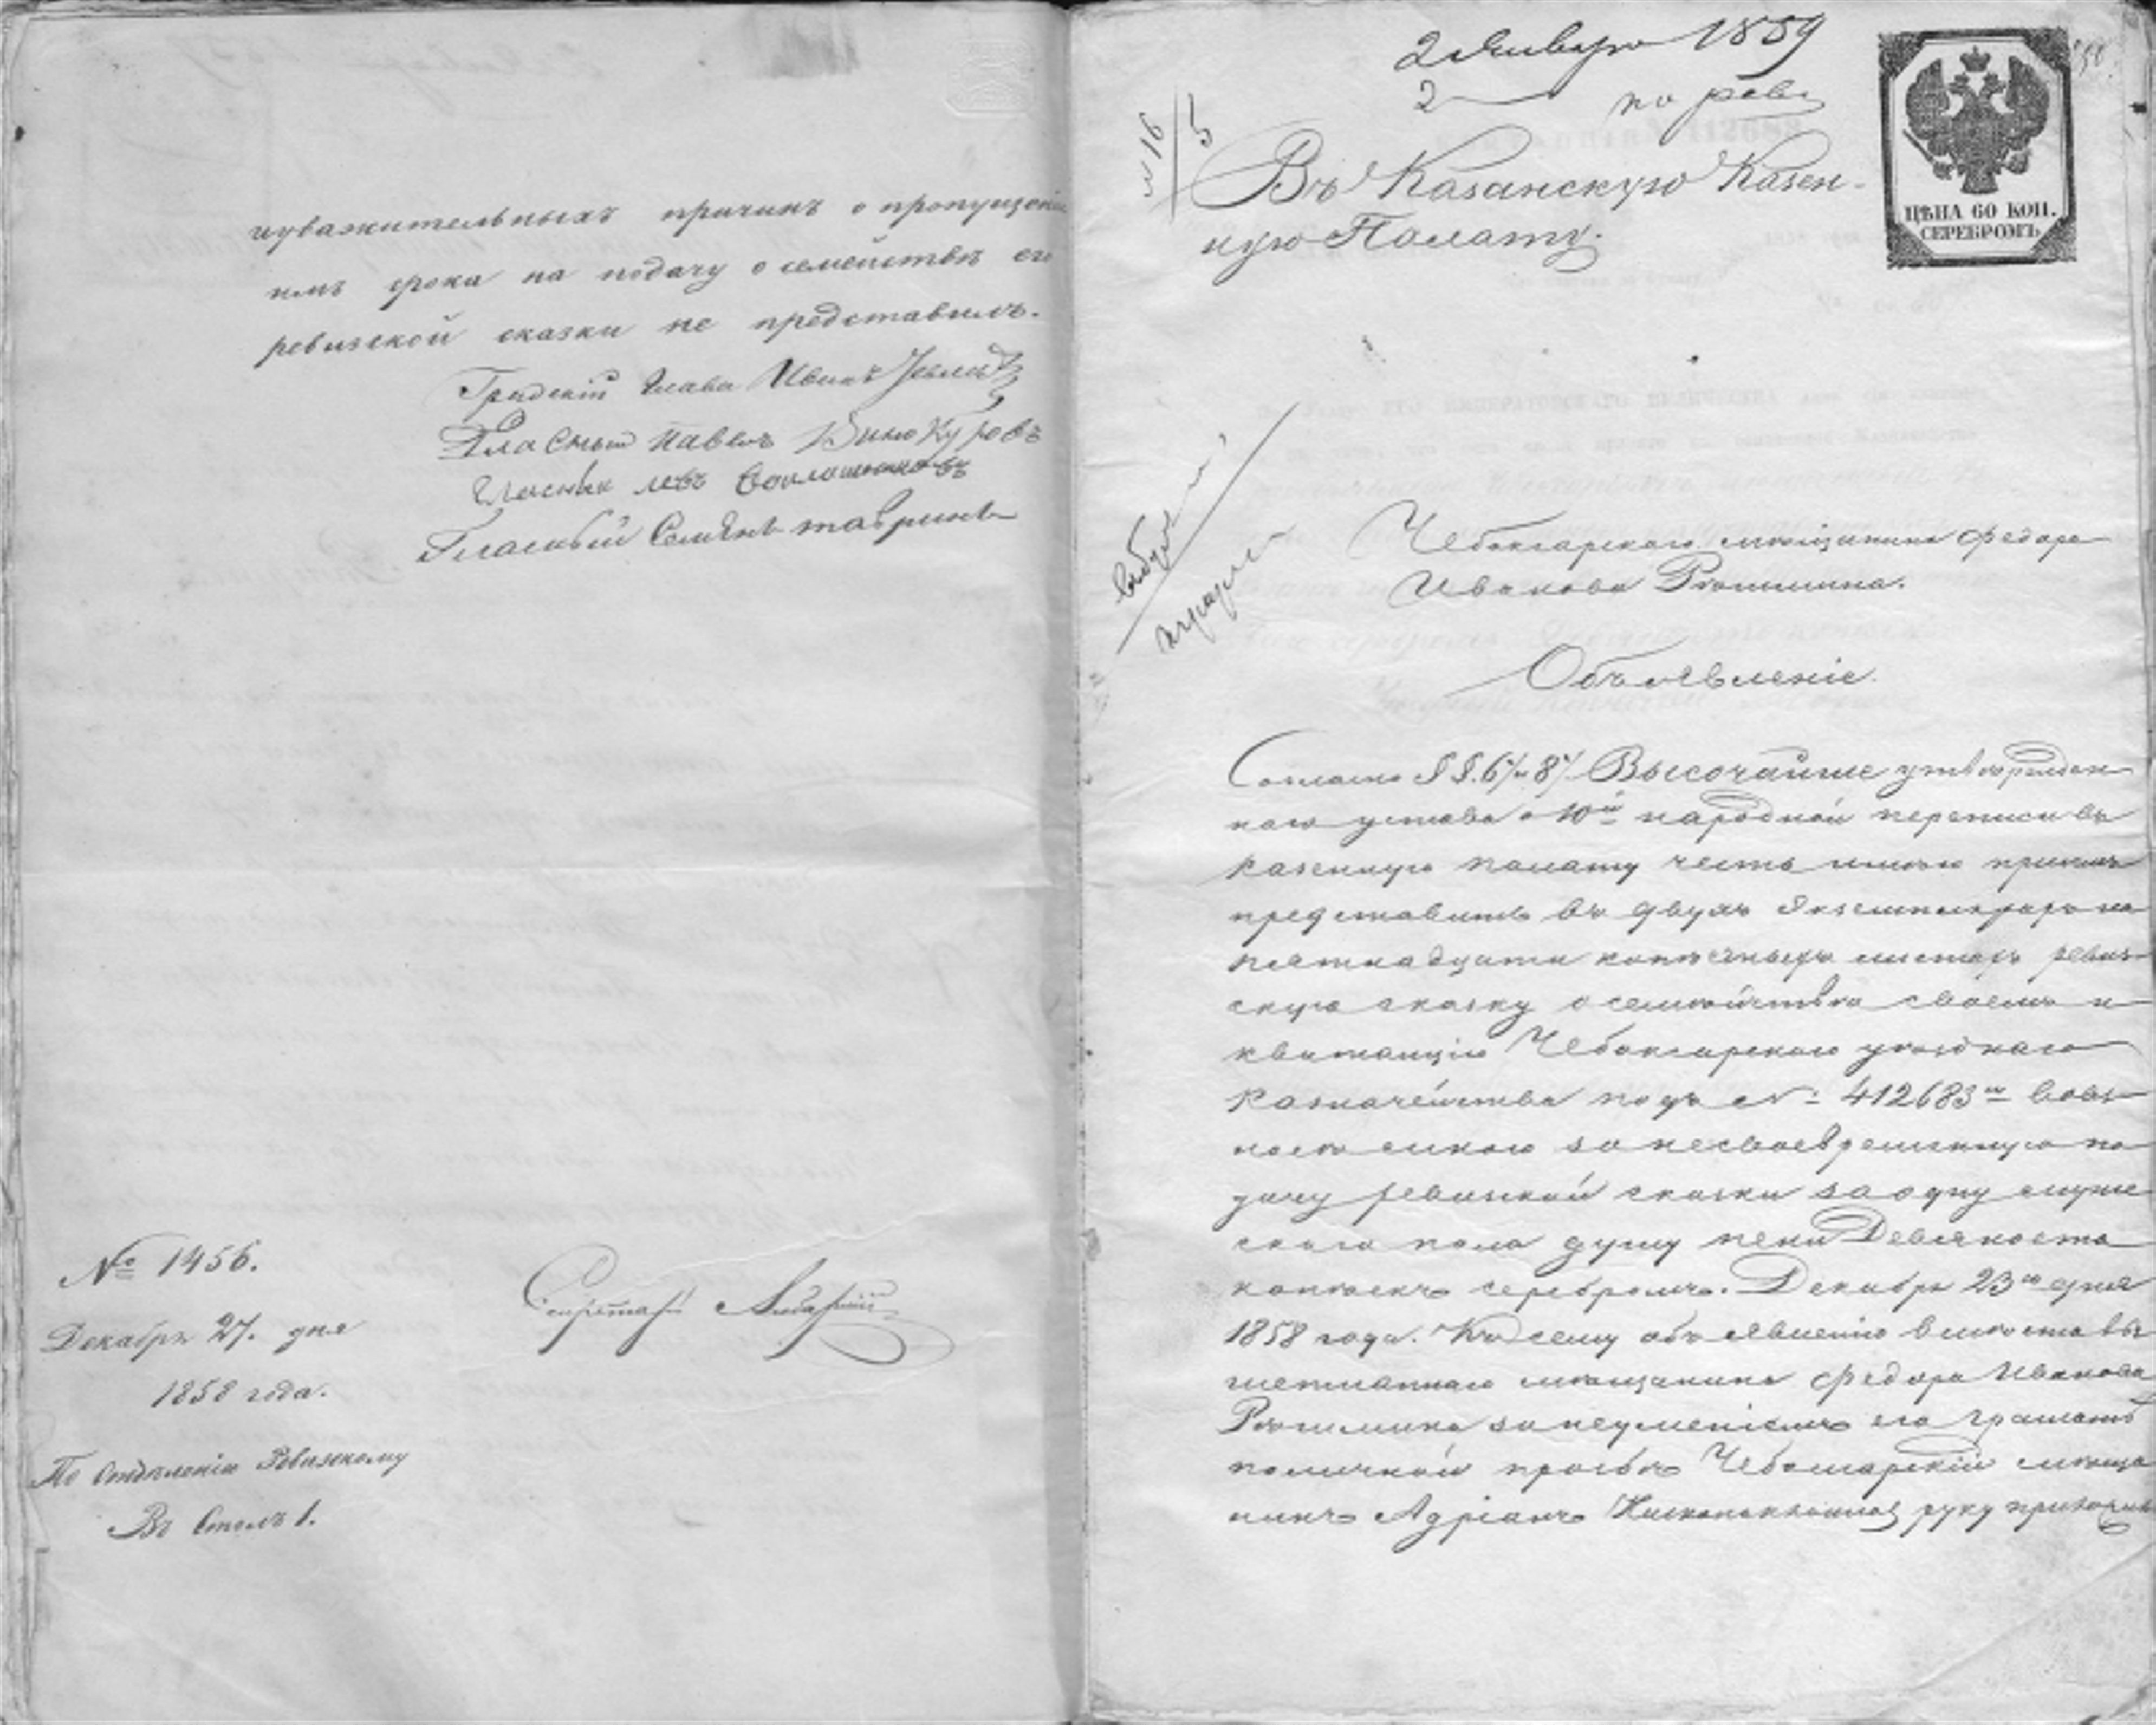 иуважительныхъ причинъ о пропущеніи
имъ срока на подачу о семействѣ его
ревизской сказки не представилъ.
Градскій Глава Иванъ
Гласный Павелъ Винокуровъ
Гласный Левъ
Гласный Семенъ Тавринъ
№ 1456.
Декабря 27. дня
1858 года.
По Отдѣленію Ревизскому
Въ Столъ 1.
Секретарь
2 Января 1859
2 по рев.
№ 16
5
Въ Казанскую Казен-
ную Палату.
ЦѢНА 60 КОП.
СЕРЕБРОМЪ.
Чебоксарскаго мѣщанина Федора
Иванова
Объявленіе.
Согласно §§. 67 и 87 Высочайше утвержден
наго устава о 10й народной переписи въ
казенную палату честь имѣю при семъ
представить въ двухъ экземплярахъ на
пятнадцати копѣечныхъ листахъ ревиз
скую сказку о семѣйствѣ своемъ и
квитанцію Чебоксарскаго уѣзднаго
Казначейства подъ №: 412683м вовз
носѣ мною за несвоевременную по
дачу ревизкой сказки за одну муже
скаго пола душу пени Девяноста
копѣекъ серебромъ. Декабря 23го дня
1858 года. Къ сему объявленію вмѣсто вы
шеписаннаго мѣщанина Федора Иванова
занеуменіемъ его грамотѣ
поличной прозьбѣ Чебоксарскій мѣща
нинъ Адріанъ руку приложилъ